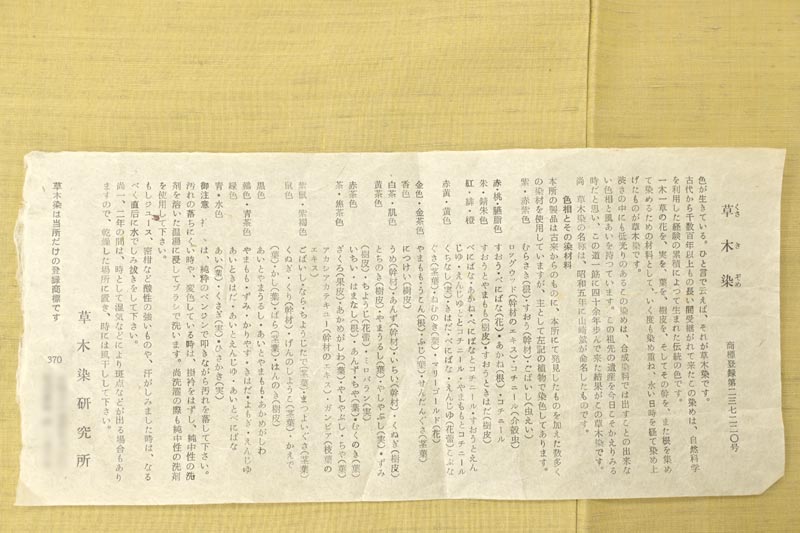 草木染
くさ き ぞめ
商標登録第二三七二二〇号
色が生きている。ひと言で云えば、それが草木染です。
古代から千数百年以上もの長い間受継がれて来たこの染めは、自然科学
を利用した経験の累積によって生まれた伝統の色です。
一木一草の花を、実を、葉を、樹皮を、そしてその幹を、また根を集め
て染めるための材料として、いく度も染め重ね、永い日時を経て染め上
げたものが草木染です。
渋さの中にも底光りのあるこの染めは、合成染料では出すことの出来な
い色相と風あいを持つています。この祖先の遺産を今日こそかえりみる
時だと思い、この道一筋に四十余年歩んで来た結果がこの草木染です。
尚、草木染の名称は、昭和五年に山崎斌が命名したものです。
色相とその染材料
本所の製品は古来からのものに、本所にて発見したものを加えた数多く
の染材を使用していますが、主として左記の植物で染色してあります。
紫・赤紫色 むらさき(根)・すおう(幹材)・ごばいし(虫えい)
ロッグウッド(幹材のエキス)コチニール(介殻虫)
赤・桃・臙脂色 すおう・べにばな(花)・あかね(根)・コチニール
朱・錆朱色 すおうとやまもも(樹皮)・すおうときはだ(樹皮)
紅・緋・橙 べにばな・あかね・べにばなとコチニール・すおうとえん
じゆ・えんじゆとコチニール・やまももとコチニール
赤黄・黄色 くちなし(実)・きはだ・べにばな・えんじゆ(花蕾)こぶな
ぐさ(茎葉)・ねむのき(葉)・マリーゴールド(花)
金色・金茶色 やまもも・うこん(根)・ふじ(葉)・せんだんぐさ(茎葉)
香色 につけい(樹皮)
白茶・肌色 うめ(幹材)・あんず(幹材)・いちい(幹材)・くぬぎ(樹皮)
黄茶色 とちのき(樹皮)・やまうるし(葉)・やしやぶし(実)・ずみ
(樹皮)・ちようじ(花蕾)・ミロバラン(実)
赤茶色 いちい・はまなし(根)・あんず・ちや(葉)・むくのき(葉)
茶・焦茶色 ざくろ(果皮)・あかめがしわ(葉)・やしやぶし・ちや(葉)
アカシアカテキュー(幹材のエキス)・ガンビア(枝葉の
エキス)
紫鼠・紫褐色 ごばいし・なら・ちようじたで(茎葉)・まつよいぐさ(茎葉)
鼠色 くぬぎ・くり(幹材)・げんのしようこ(茎葉)・かえで
(葉)・かし(茎葉)・ばら(茎葉)・はんのき(樹皮)
黒色 あいとやまうるし・あいとやまもも・あかめがしわ
鶸色・青茶色 やまもも・ずみ・かりやす・きはだ・よもぎ・えんじゆ
緑色 あいときはだ・あいとえんじゆ・あいとべにばな
青・水色 あい(葉)・くさぎ(実)・ひさかき(実)
御注意 は、純粋のベンジンで叩きながら汚れを落して下さい。
汚れの落ちにくい時や、変色している時は、掛衿をはずし、純中性の洗
剤を溶いた温湯に浸してブラシで洗います。尚洗濯の際も純中性の洗剤
を使用して下さい。
もしジュース、蜜柑など酸性の強いものや、汗がしみました時は、なる
べく直后に水でしみ抜きをして下さい。
尚一、二年の間は、時として湿気などにより斑点などが出る場合もあり
ますので、乾燥した場所に置き、時には風干しして下さい。
草木染は当所だけの登録商標です
草木染研究所
370